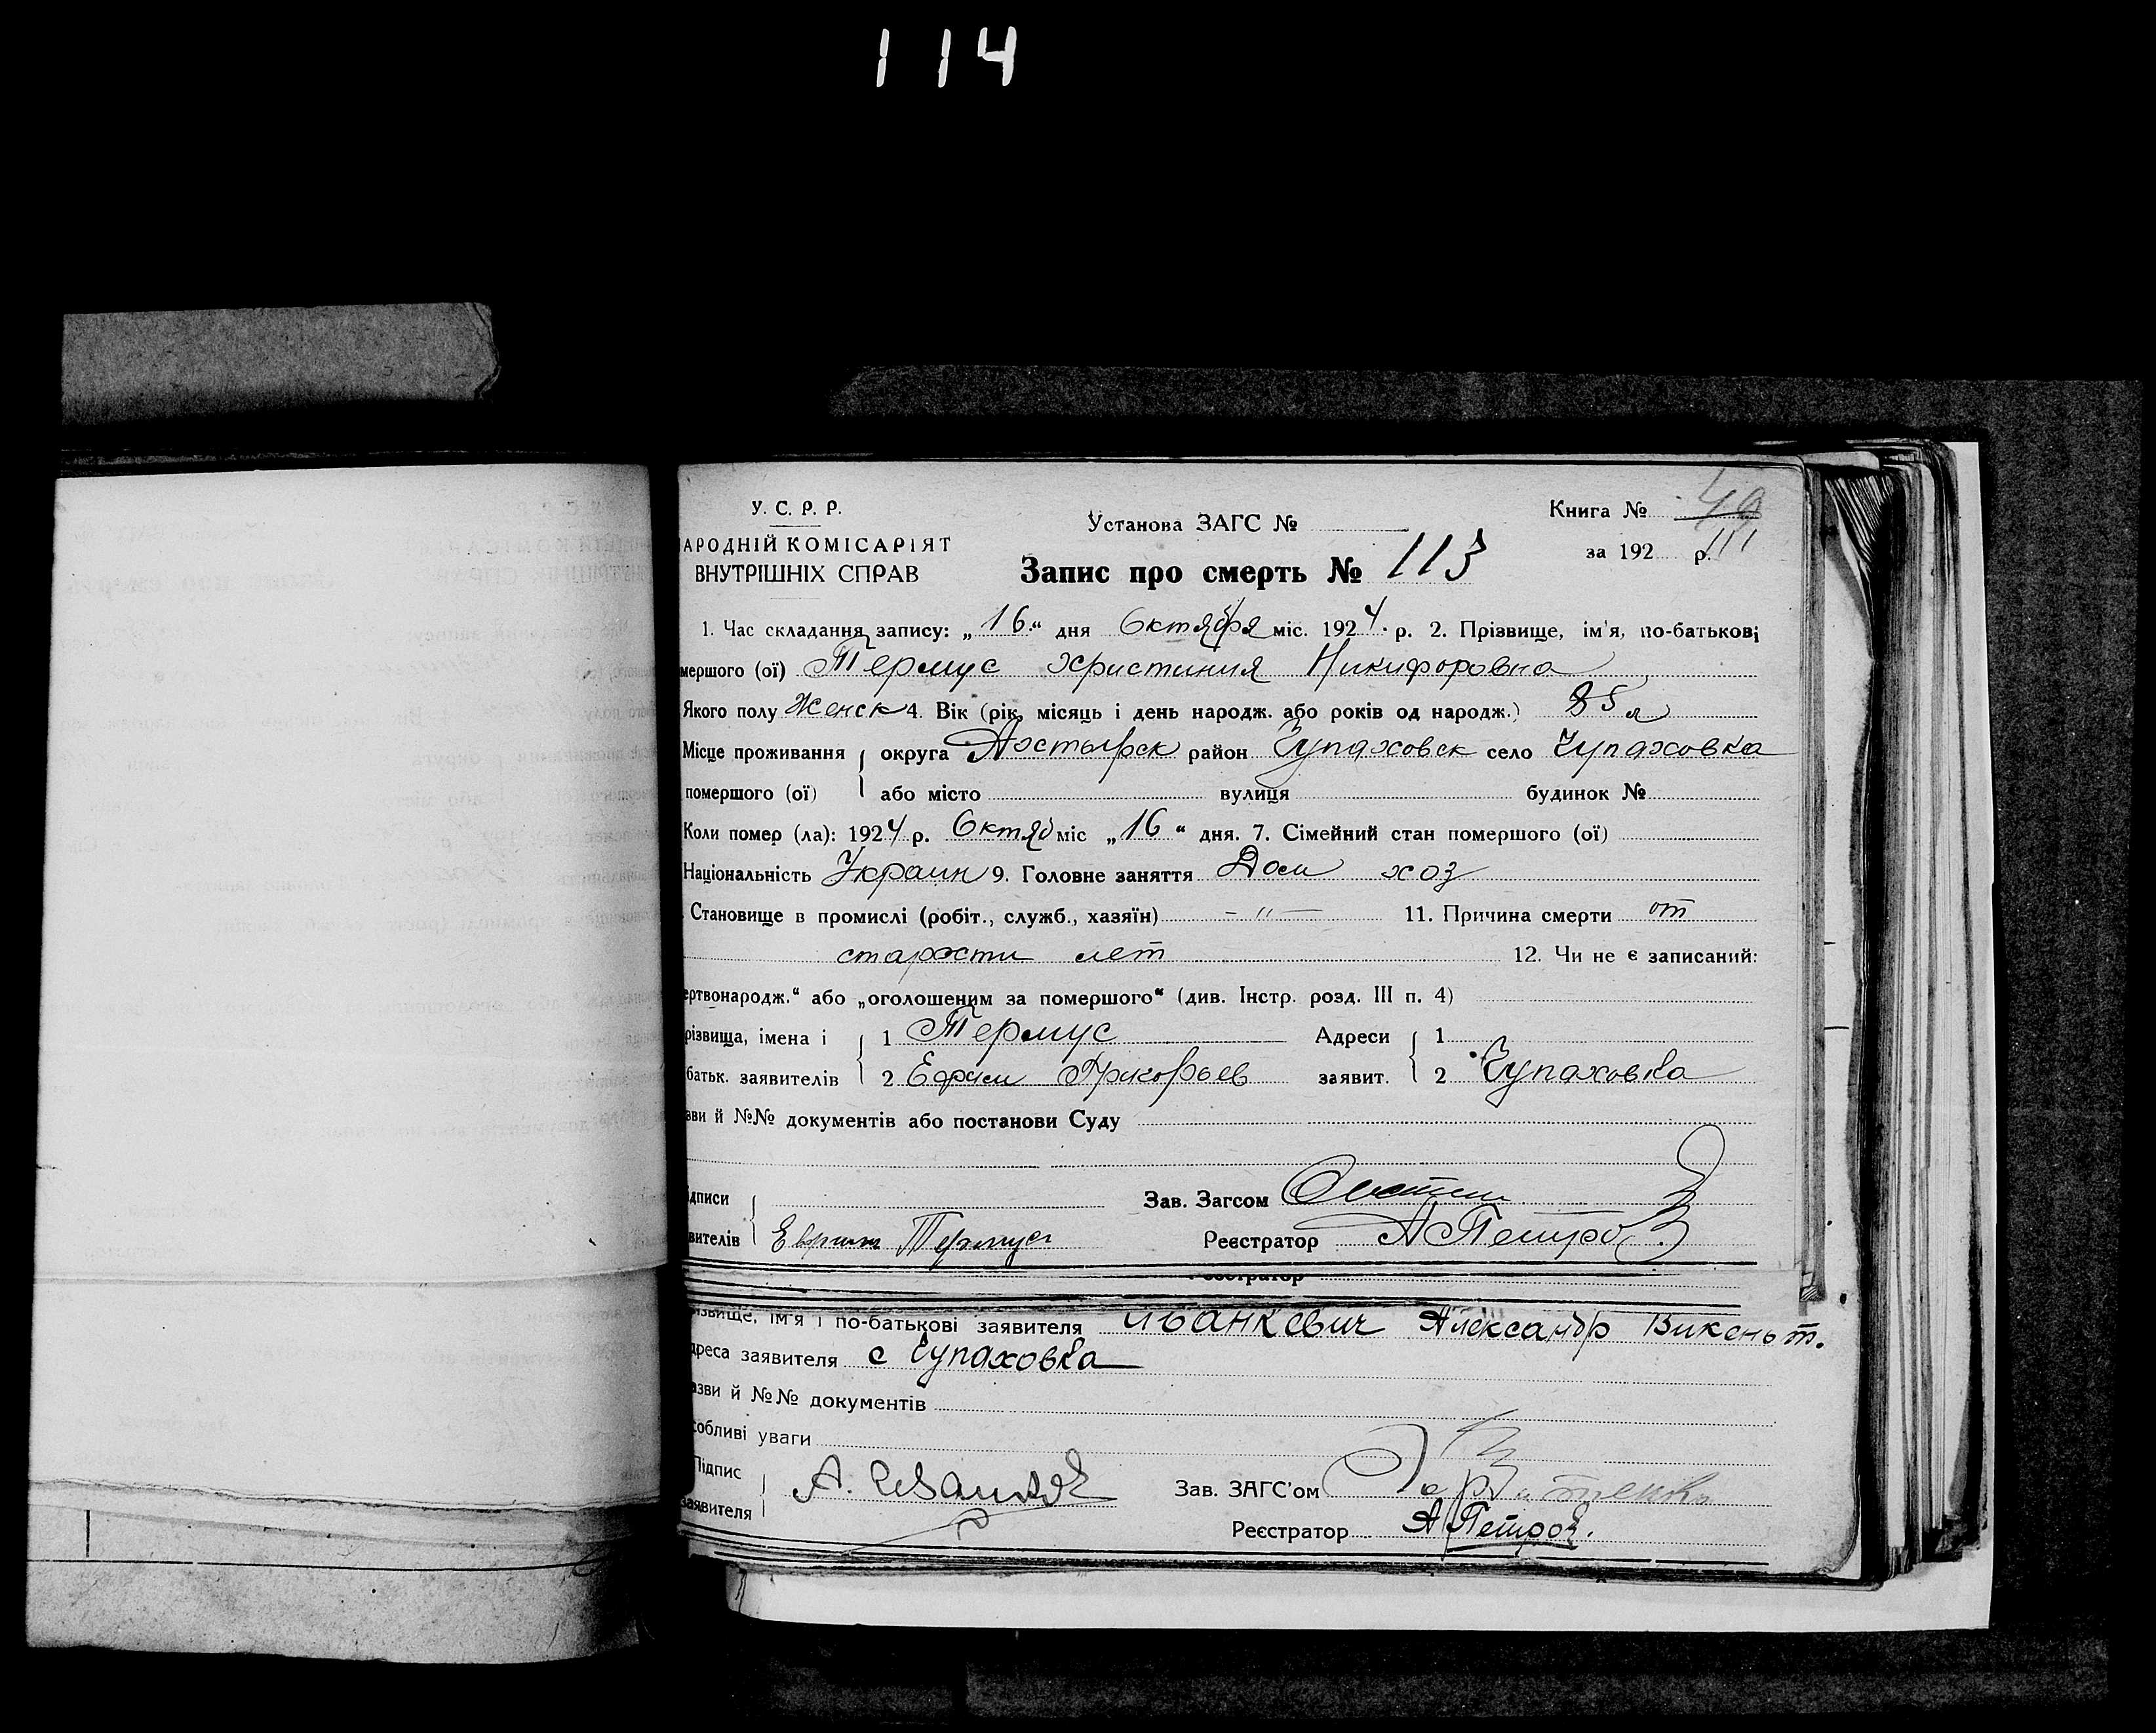 114
У. С. Р. Р.
АРОДНІЙ КОМІСАРІЯТ
ВНУТРІШНІХ СПРАВ
Установа ЗАГС №
Книга № 49
за 192 р. 111
Запис про смерть № 113
1. Час складання запису: „16“ дня Октября міс. 1924 р. 2. Прізвище, ім'я, по-батькові
мершого (ої) Термус Християния Никифоровна
Якого полу Женск 4. Вік (рік, місяць і день народж. або років од народж.) 85 л
Місце проживання округа Ахтырск район Чупаховск село Чупаховка
помершого (ої) або місто вулиця будинок №
Коли помер (ла): 1924 р. Октяб міс „16“ дня. 7. Сімейний стан помершого (ої)
Національність Украин 9. Головне заняття Дом хоз
Становище в промислі (робіт., служб., хазяїн) -"- 11. Причина смерти от
старости лет 12. Чи не є записаний:
ертвонародж.“ або „оголошеним за помершого“ (див. Інстр. розд. III п. 4)
різвища, імена і 1 Термус Адреси 1
батьк. заявителів 2 Ефим заявит. 2 Чупаховка
зви й №№ документів або постанови Суду
ідписи Зав. Загсом
вителів Термус Реєстратор А Петров
Реєстратор
ізвище, ім'я і по-батькові заявителя Иванкевич Александр Викеньт.
дреса заявителя с Чупаховка
азви й №№ документів
собливі уваги
Підпис А. Зав. ЗАГС'ом
заявителя Реєстратор А Петров.